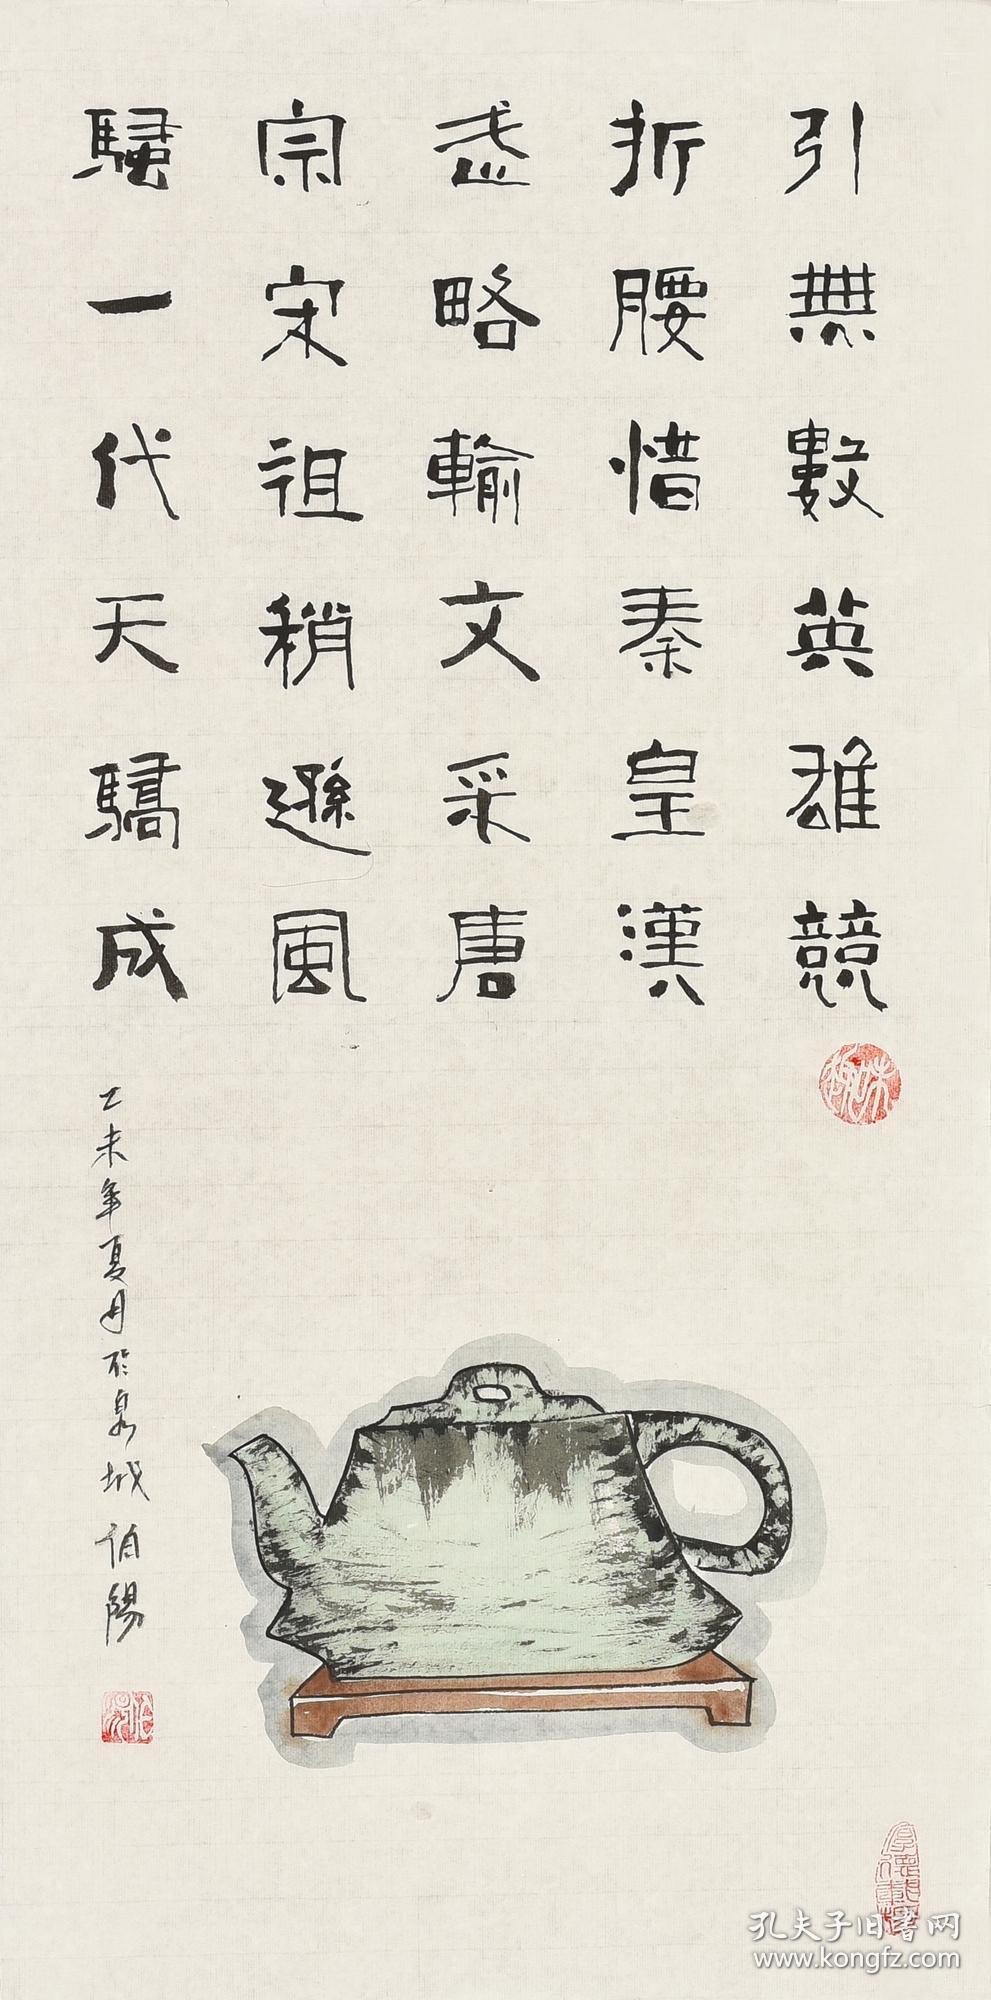 引無數英雄競
折腰惜秦皇漢
武略輸文采唐
宗宋祖稍遜風
騷一代天驕成
乙未年夏月於泉城 伯陽
厚德載物
孔夫子旧书网
www.kongfz.com